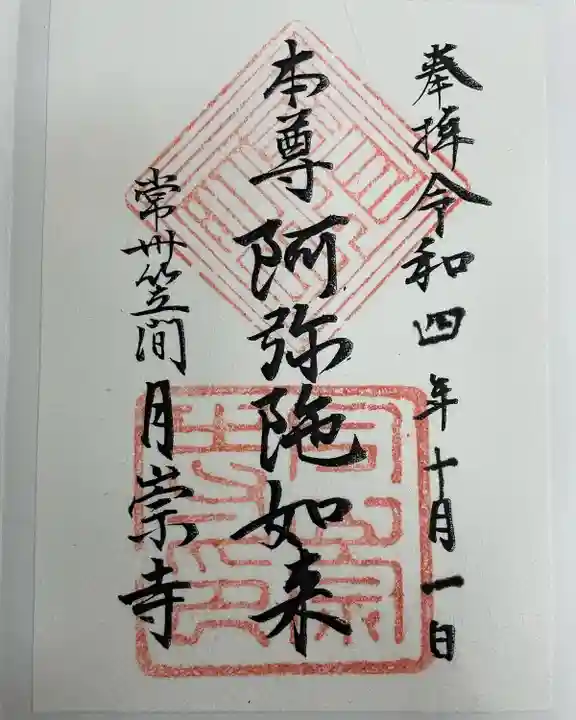 奉拝令和四年十月一日
本尊阿弥陀如来
常州笠間月崇寺